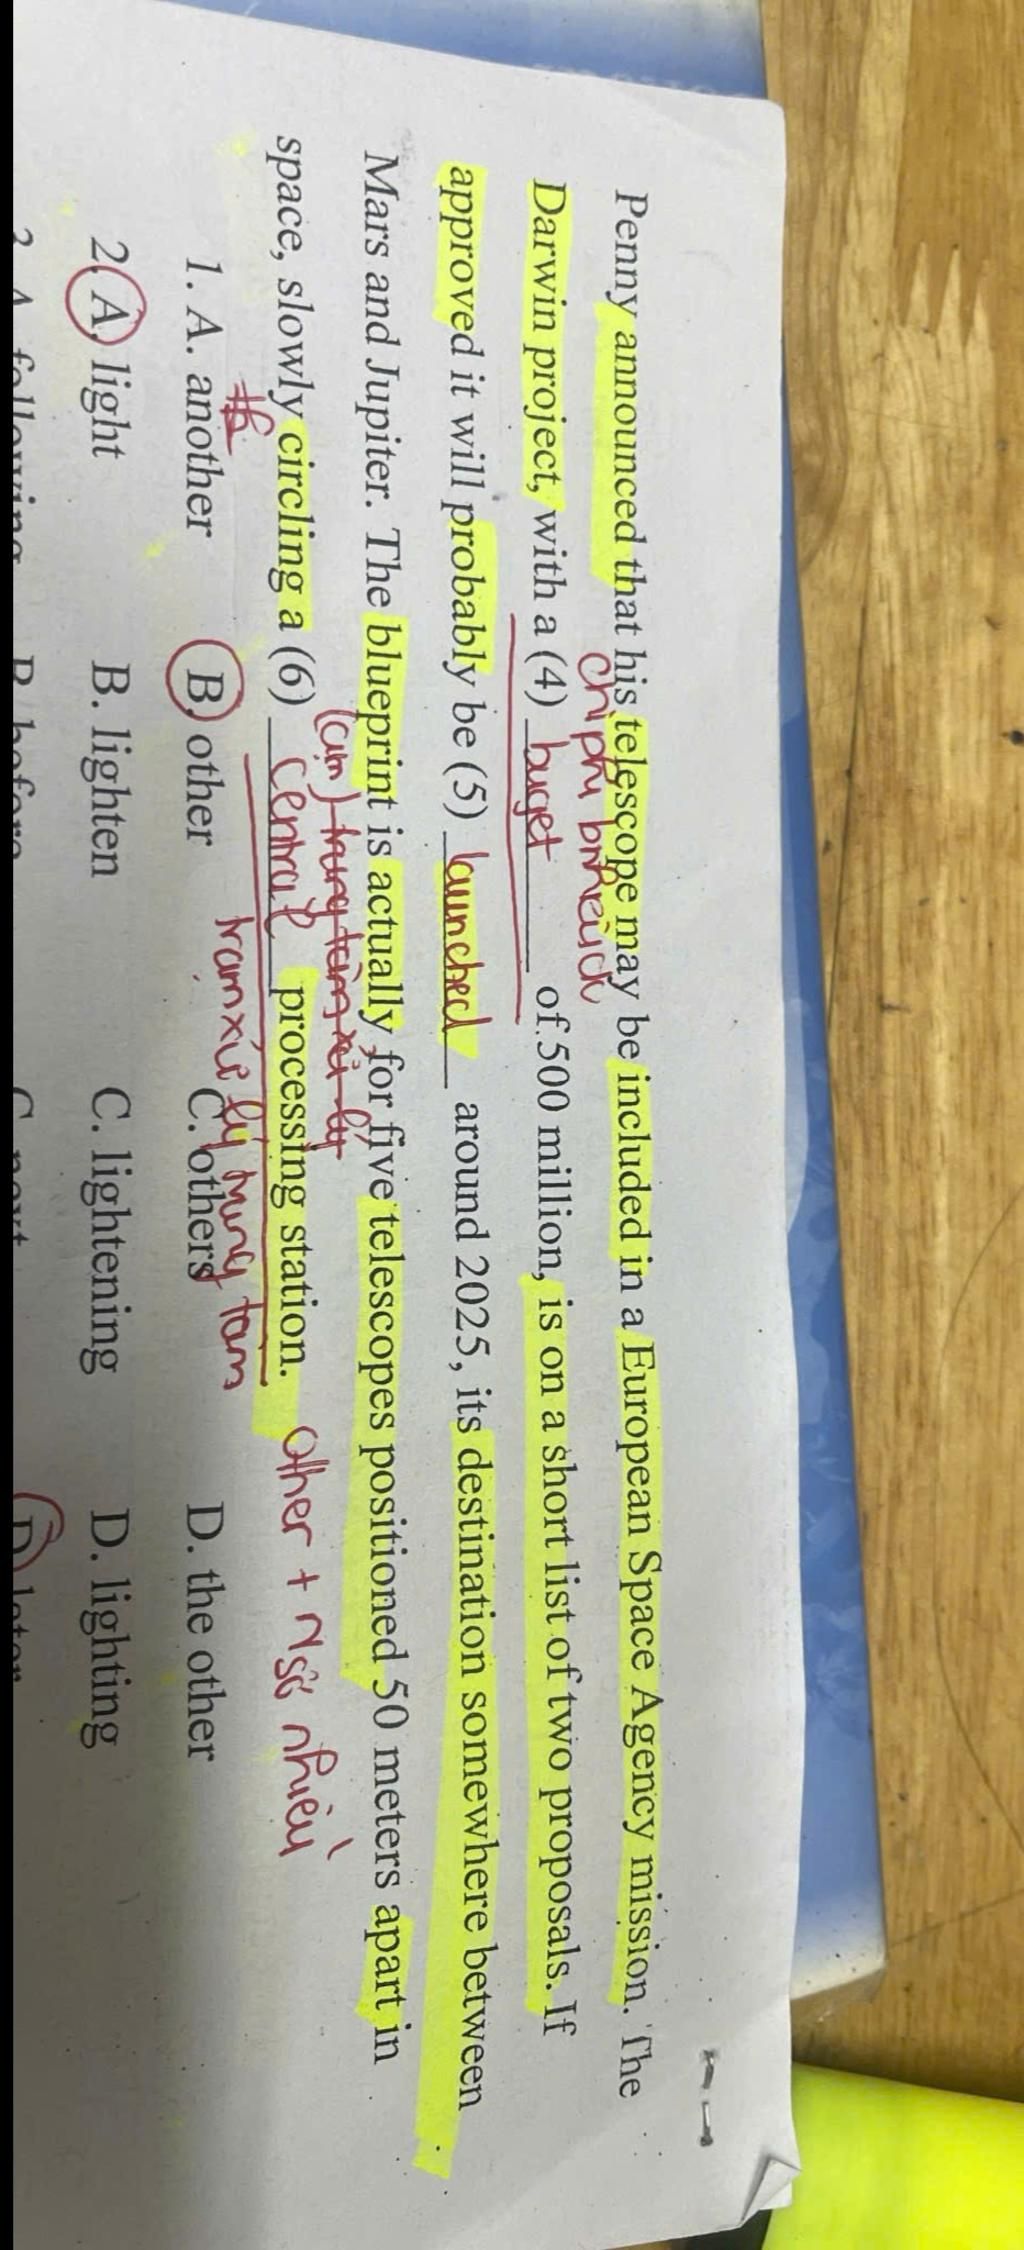 Penny announced that his telescope may be included in a European Space Agency mission. The
chi phí
Darwin project, with a (4) buget of 500 million, is on a short list of two proposals. If
approved it will probably be (5) launched around 2025, its destination somewhere between
Mars and Jupiter. The blueprint is actually for five telescopes positioned 50 meters apart in
trung tâm xử lý
space, slowly circling a (6) central processing station. other + N số nhiều
trạm xử lý trung tam
1. A. another B. other C. others D. the other
2. A. light B. lighten C. lightening D. lighting
3. A. following B. before C. next D. later